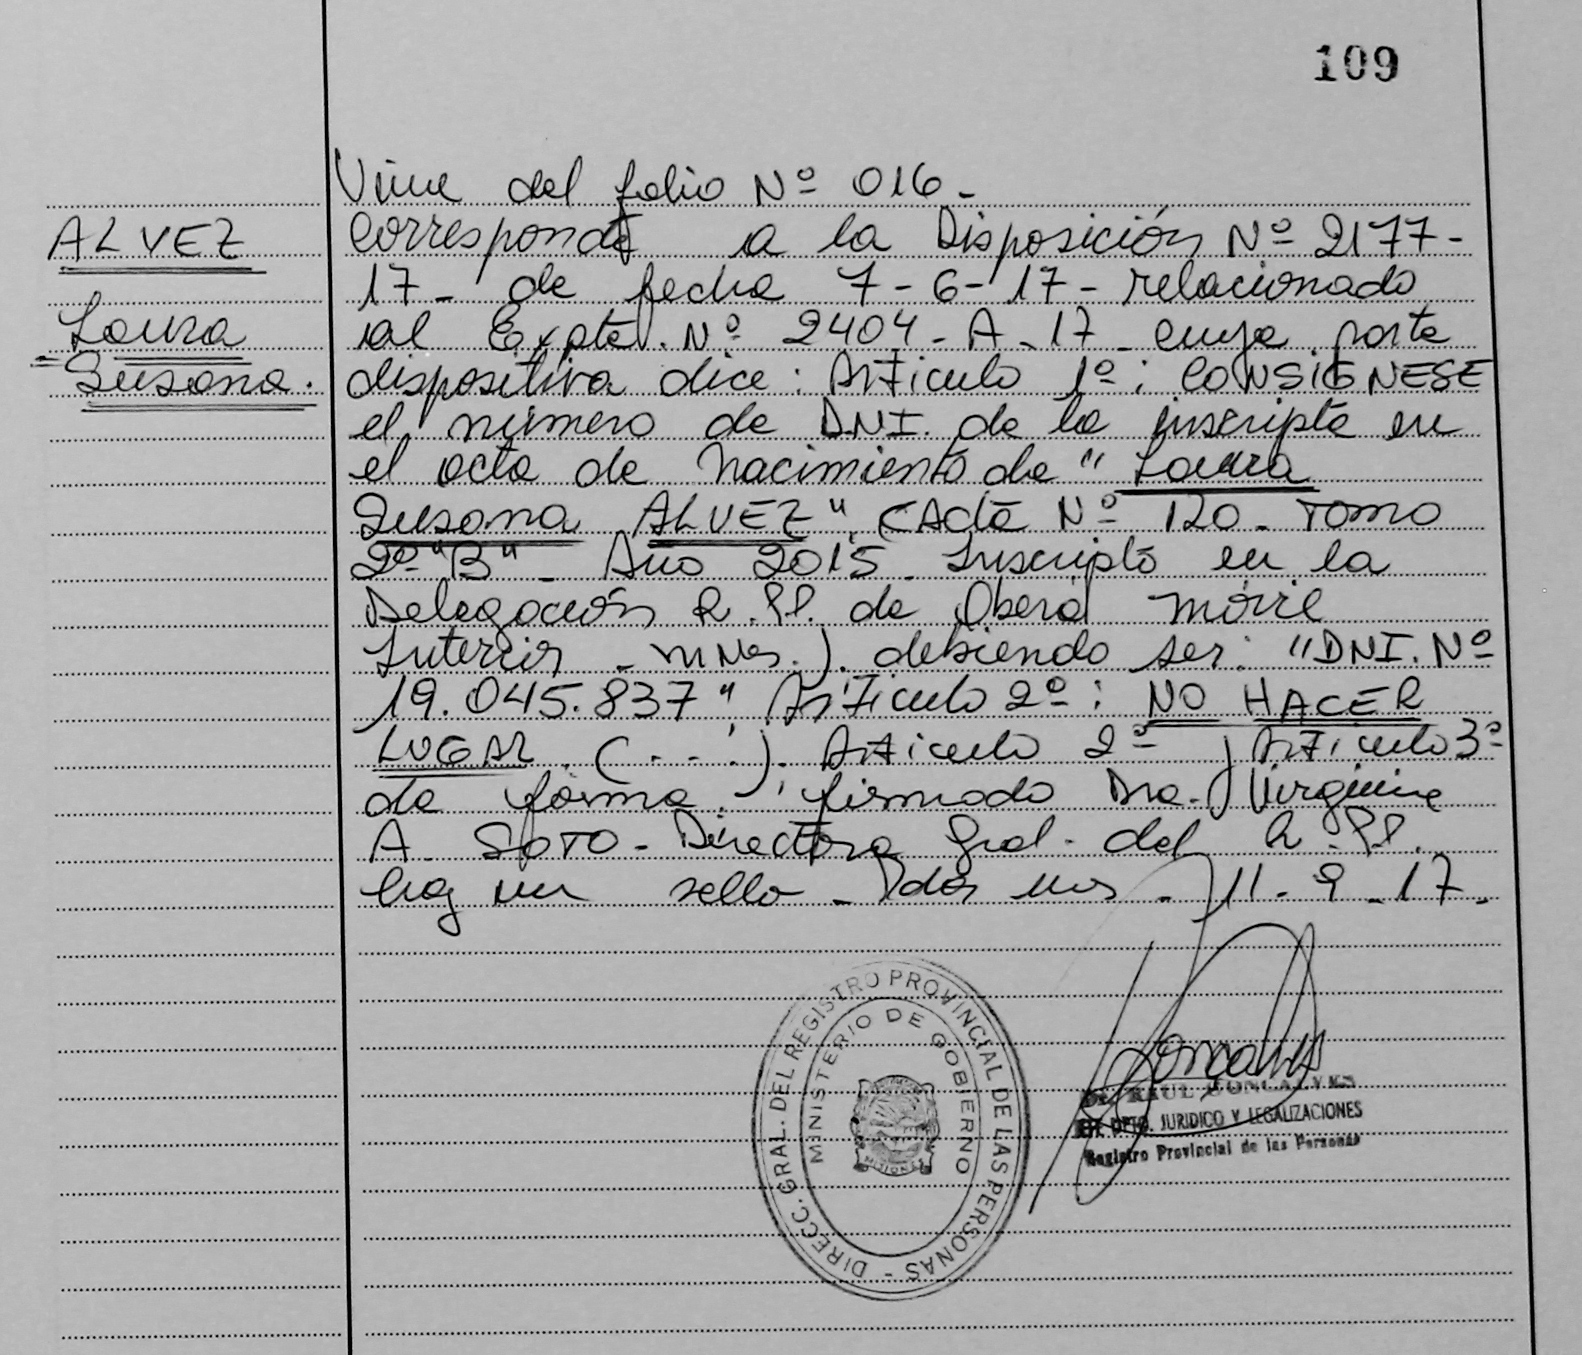 109
Viene del folio Nº 016-
ALVEZ
Corresponde a la Disposición Nº 2177-
17- de fecha 7-6-17- relacionado
Laura
al Expte. Nº 2404-A-17- cuya parte
Susana.
dispositiva dice: Artículo 1º: CONSIGNESE
el número de DNI. de la inscripta en
el acta de nacimiento de "Laura
Susana ALVEZ" (Acta Nº 120- Tomo
2º "B" - Año 2015- Inscripta en la
Delegación R.PP. de Oberá móvil
Interior - mnes.). debiendo ser: "DNI. Nº
19.045.837" Artículo 2º: NO HACER
LUGAR. (...). Artículo 2º Artículo 3º
de forma. firmado Dra. Virginia
A. SOTO- Directora Gral. del R.PP.
hay un sello- Pdas Mnes- 11-9-17-
DIRECC. GRAL. DEL REGISTRO PROVINCIAL DE LAS PERSONAS -
MINISTERIO DE GOBIERNO
MISIONES
Goncalves
RAUL GONCALVES
DPTO. JURIDICO Y LEGALIZACIONES
Registro Provincial de las Personas